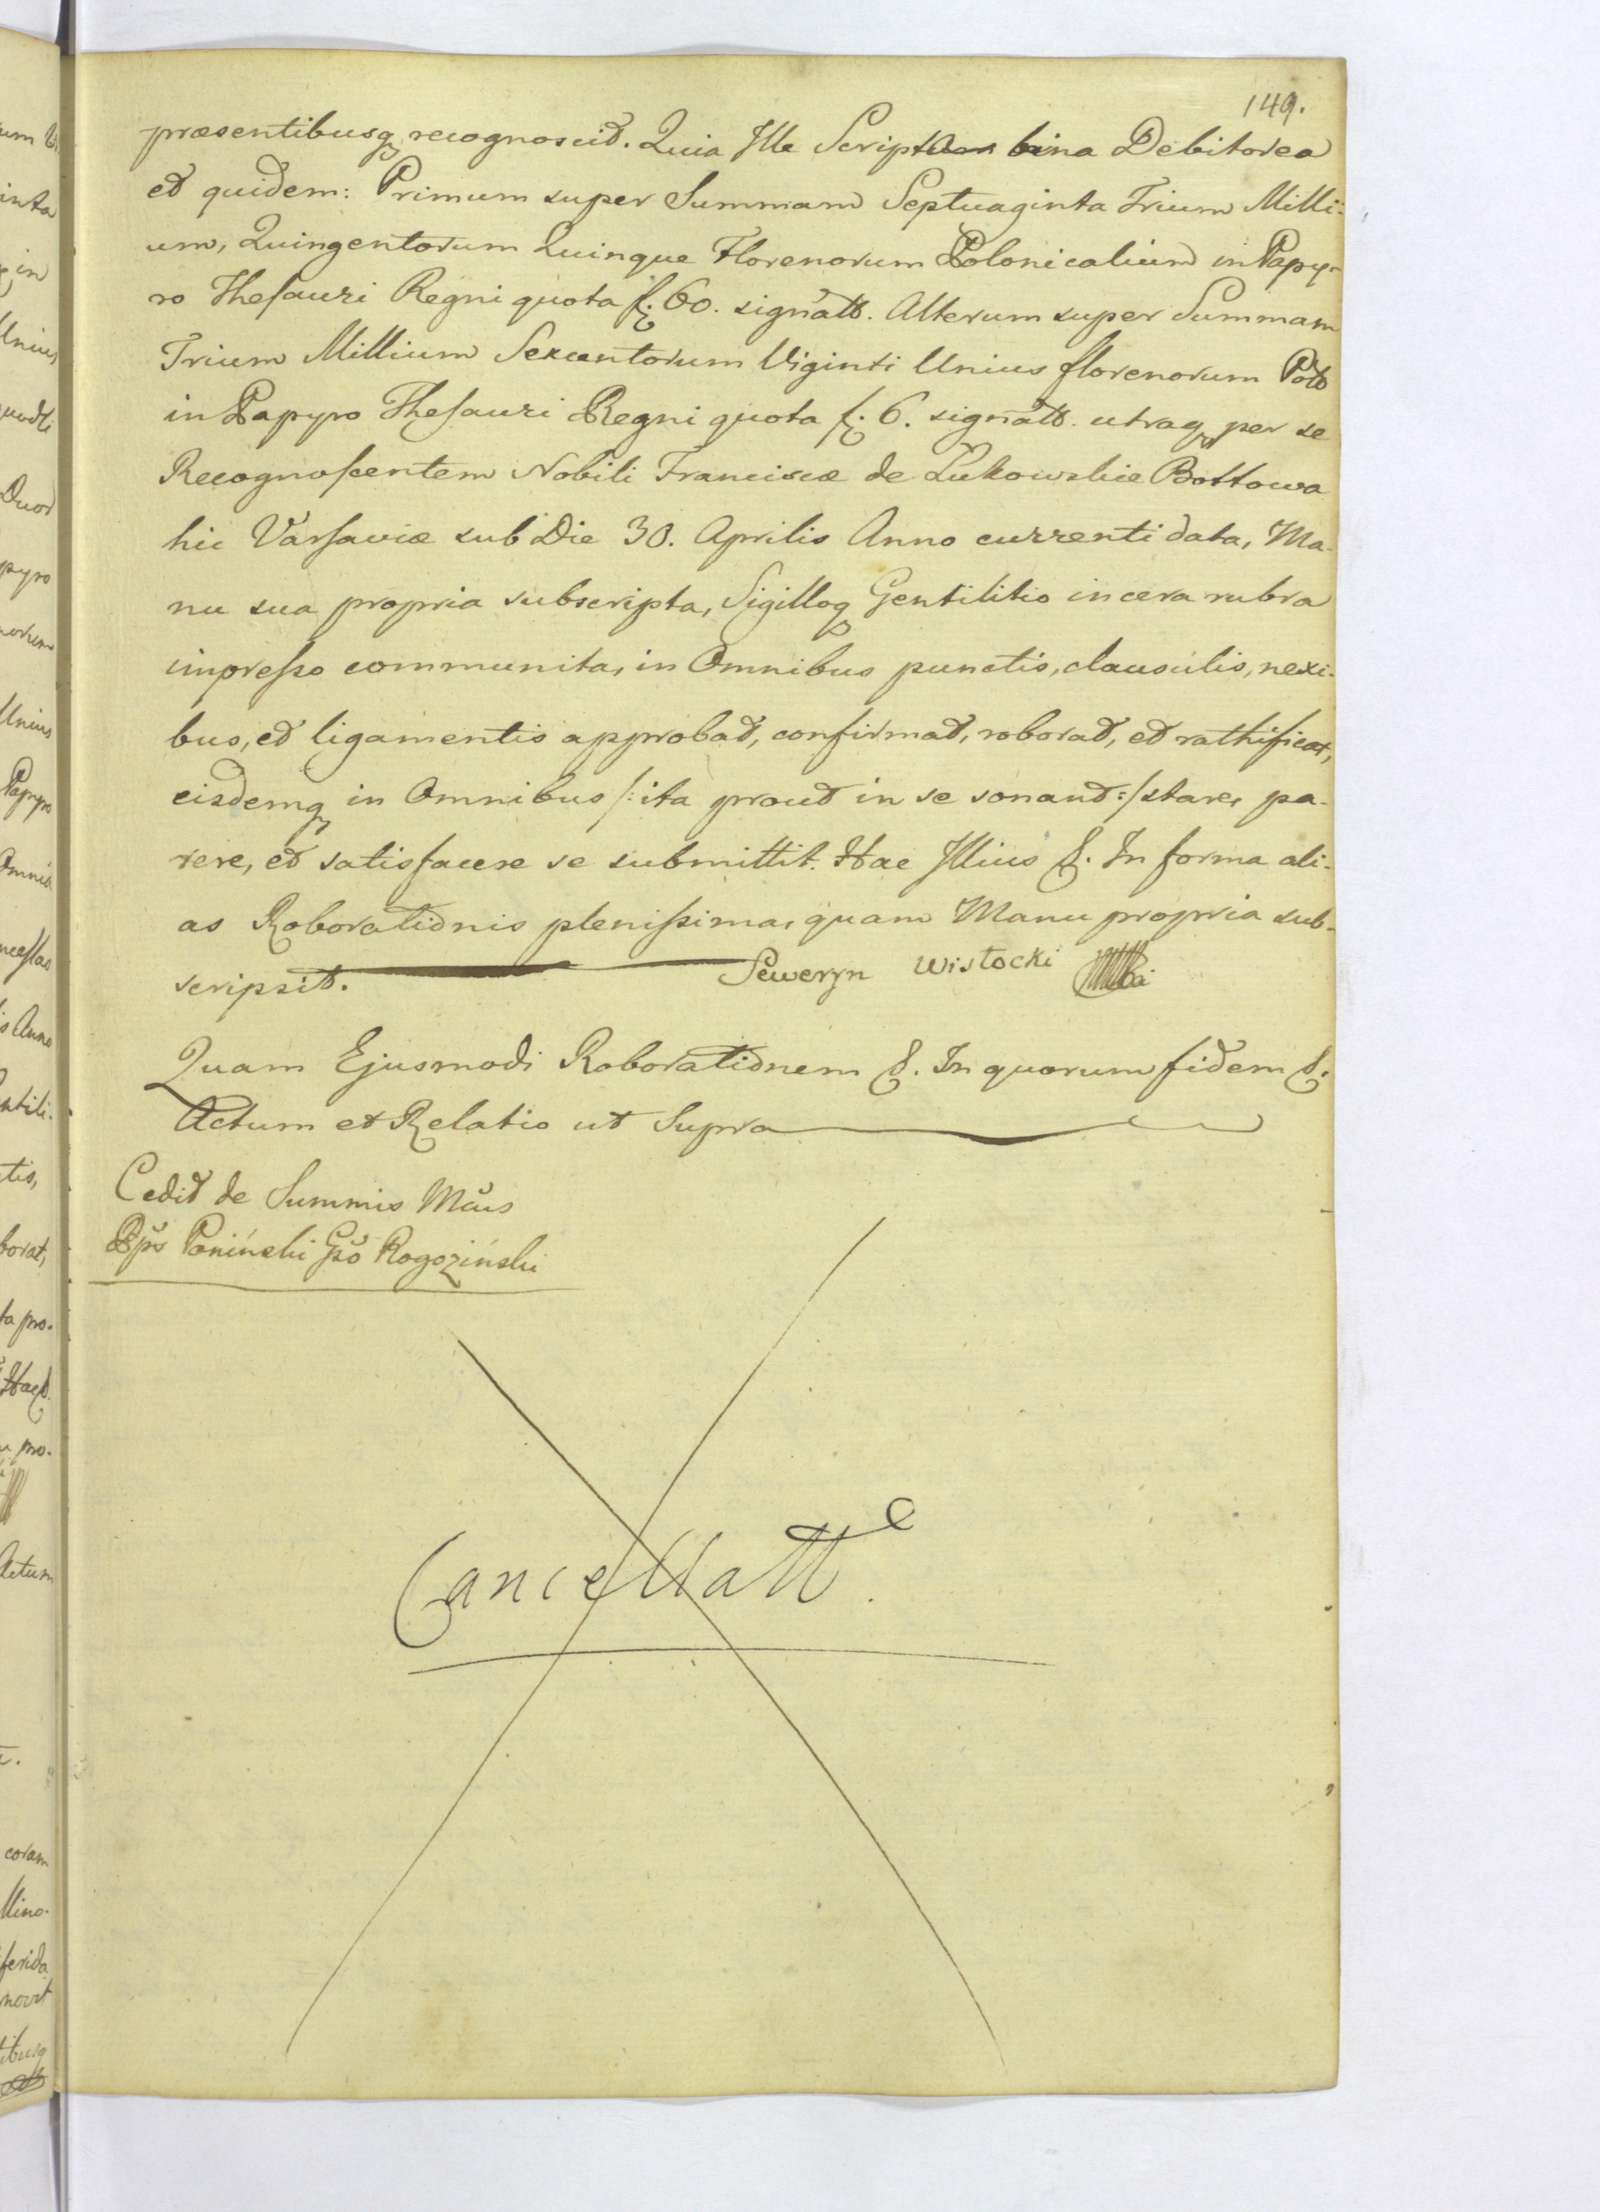 149.
præsentibusq recognoscit. Quia Ille Scripta bina Debitorea
et quidem: Primum super Summam Septuaginta Trium Milli-
um, Quingentorum Quinque Florenorum Polonicalium in Papy-
ro Thesauri Regni quota f. 60. signatt. Alterum super Summam
Trium Millium Sexcentorum Viginti Unius florenorum Pol
in Papyro Thesauri Regni quota f. 6. signatt. utraq per se
Recognoscentem Nobili Franciscæ de Łukowskie Bottowa
hic Varsaviæ sub Die 30. Aprilis Anno currenti data, Ma-
nu sua propria subscripta, Sigilloq Gentilitio in cera rubra
impresso communita, in Omnibus punctis, clausulis, nexi-
bus, et ligamentis approbat, confirmat, roborat, et rathificat,
eisdemq in Omnibus /: ita prout in se sonant :/ stare, pa-
rere, et satisfacere se submittit. Hac Illius &. In forma ali-
as Roborationis plenissima, quam Manu propria sub-
scripsit. Seweryn Wisłocki
Quam Ejusmodi Roborationem &. In quorum fidem &.
Actum et Relatio ut Supra
Cedit de Summis
Poniński Rogoziński
Cancellatt.